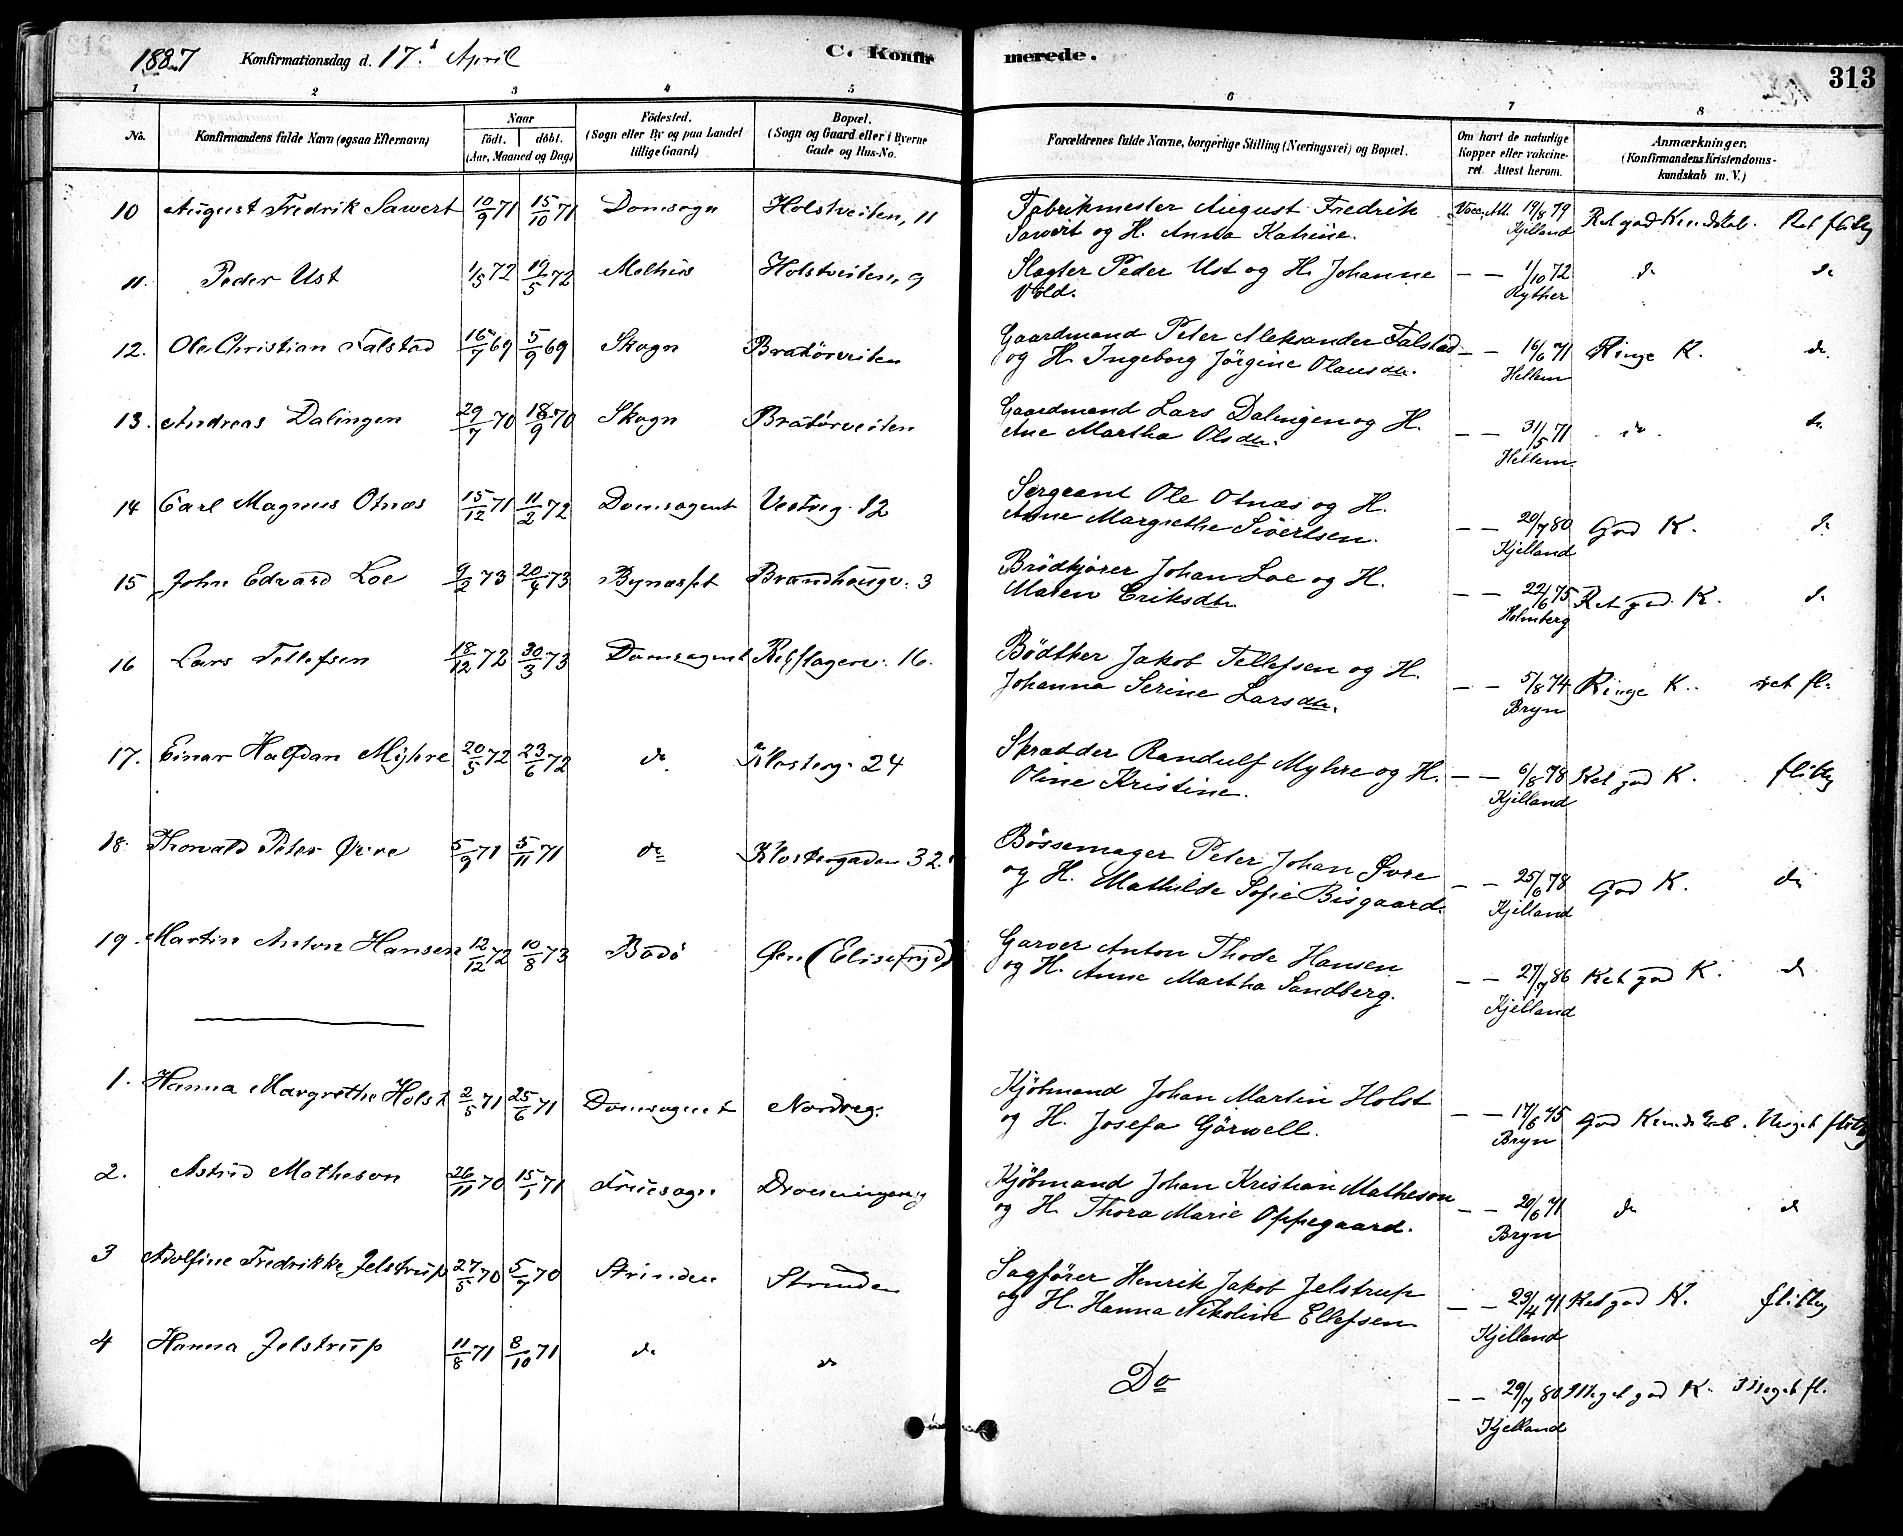 1887 Konfirmationsdag d. 17. April C. Konfirmerede. 313
1 2 3 4 5 6 7 8
No. Konfirmandens fulde Navn (egsaa Efternavn) Naar født. døbt. (Aar, Maaned og Dag) Fødested. (Sogn eller By og paa Landet tillige Gaard) Bopæl. (Sogn og Gaard eller i Byerne Gade og Hus-No. Forældrenes fulde Navne, borgerlige Stilling (Næringsvei) og Bopæl. Om havt de naturlige Kopper eller vakcineret. Attest herom. Anmærkninger. (Konfirmandens Kristendomskundskab m. V.)
10 August Fredrik Sawert 10/9 71 15/10 71 Domsogn Holstveiten, 11 Fabrikmester August Fredrik Vacc. Att. 19/8 79 Ret god Kundskab. Ret flittig
Sawert og H. Anna Katrine. Kjelland
11. Peder Ust 1/5 72 19/5 72 Melhus Holstveiten, 9 Slagter Peder Ust og H. Johanne – – 1/10 72 do do
Vold. Ryther
12. Ole Christian Falstad 16/7 69 5/9 69 Skogn Bratørveiten Gaardmand Peter Aleksander Falstad – – 16/6 71 Ringe K. do.
og H. Ingeborg Jørgine Olausdtr. Hellem
13. Andreas Dalingen 29/7 70 18/9 70 Skogn Bratørveiten Gaardmand Lars Dalingen og H. – – 31/5 71 do. do
Ane Martha Olsdtr. Hellem.
14 Carl Magnus Otnæs 15/12 71 11/2 72 Domsognet Vestreg. 12 Sergeant Ole Otnæs og H. – – 20/7 80 God K. do
Anne Margrethe Sivertsen. Kjelland
15 John Edvard Loe 9/2 73 20/4 73 Bynæsset Brandhaugv. 3 Brødkjører Johan Loe og H. – – 22/6 75 Ret god K. do
Maren Eriksdtr. Holmberg
16 Lars Tellefsen 18/12 72 30/3 73 Domsognet Rebslagerv. 16. Bødtker Jakob Tellefsen og H. – – 5/8 74 Ringe K. ret fl.
Johanna Serine Larsdtr. Bryn
17. Einar Halfdan Myhre 20/5 72 23/6 72 do Klosterg. 24 Skrædder Randulf Myhre og H. – – 6/8 78 Ret god K. flittig
Oline Kristine. Kjelland
18. Thorvald Peter Øvre 5/9 71 5/11 71 do Klostergaden 32. Bøssemager Peter Johan Øvre – – 25/6 78 God K. do
og H. Mathilde Sofie Bisgaard. Kjelland
19. Martin Anton Hansen 12/12 72 10/8 73 Bodø Øen (Elisefryd) Garver Anton Thode Hansen – – 27/7 86 Ret god K. do
og H. Anne Martha Sandberg. Kjelland
1. Hanna Margrethe Holst 2/5 71 25/6 71 Domsognet Nordreg. Kjøbmand Johan Martin Holst – – 17/6 75 God Kundskab. Meget flittig
og H. Josefa Görwell. Bryn
2. Astrid Matheson 26/11 70 15/1 71 Fruesogn Dronningensg Kjøbmand Johan Kristian Matheson – – 20/6 71 do do
og H. Thora Marie Oppegaard. Bryn
3 Adolfine Fredrikke Jelstrup 27/5 70 5/7 70 Strinden Strinden Sagfører Henrik Jakob Jelstrup – – 23/4 71 Ret god K. flittig
og H. Hanna Nikoline Ellefsen Kjelland
4 Hanna Jelstrup 11/8 71 8/10 71 do do Do – – 29/7 80 Meget god K. Meget fl.
Kjelland